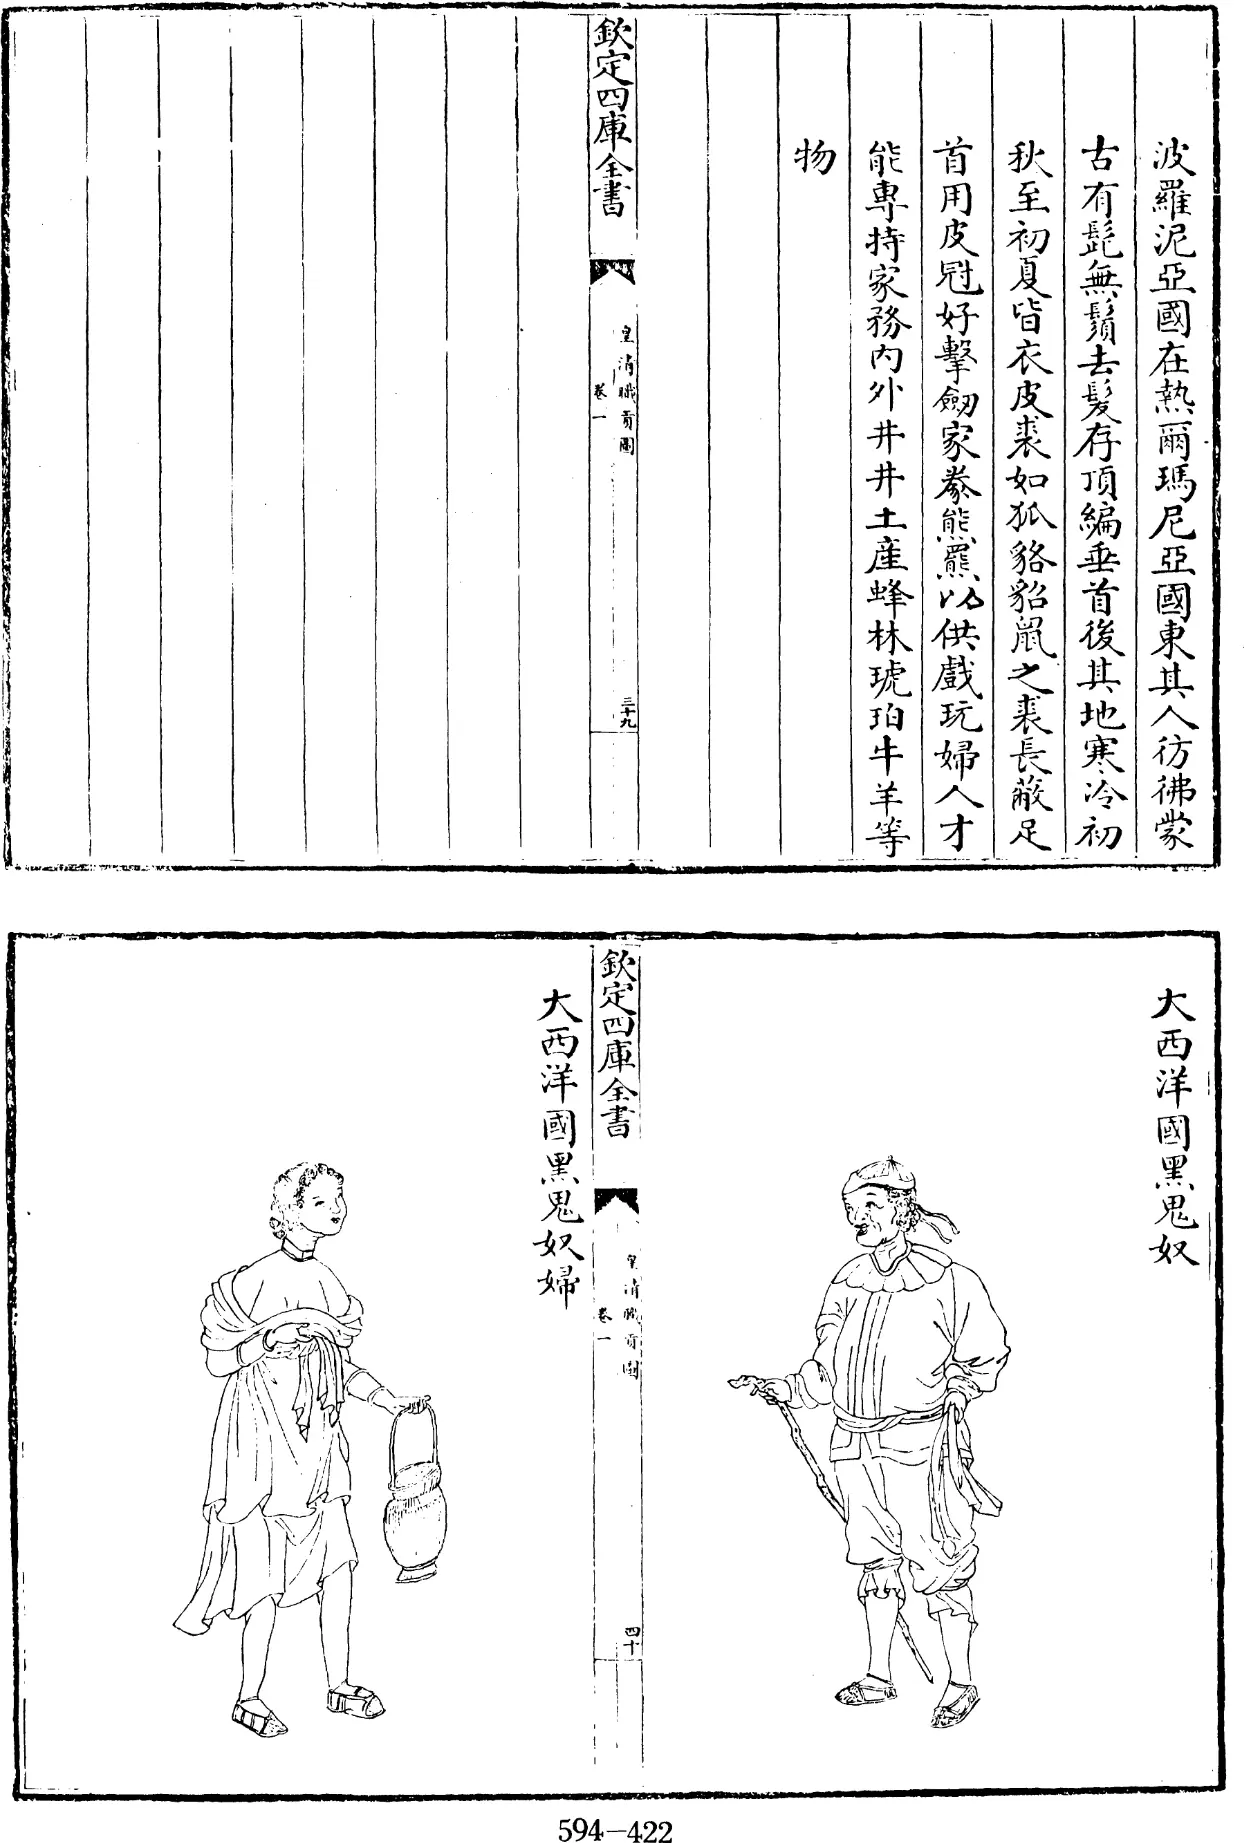 波羅泥亞國在熱爾瑪尼亞國東其人彷彿蒙
古有髭無鬚去髮存頂編垂首後其地寒冷初
秋至初夏皆衣皮裘如狐貉貂鼠之裘長蔽足
首用皮冠好擊劒家豢熊羆以供戲玩婦人才
能專持家務內外井井土産蜂林琥珀牛羊等
物
欽定四庫全書
皇清職貢圖
卷一
三十九
大西洋國黑鬼奴
欽定四庫全書
皇清職貢圖
卷一
四十
大西洋國黑鬼奴婦
594-422